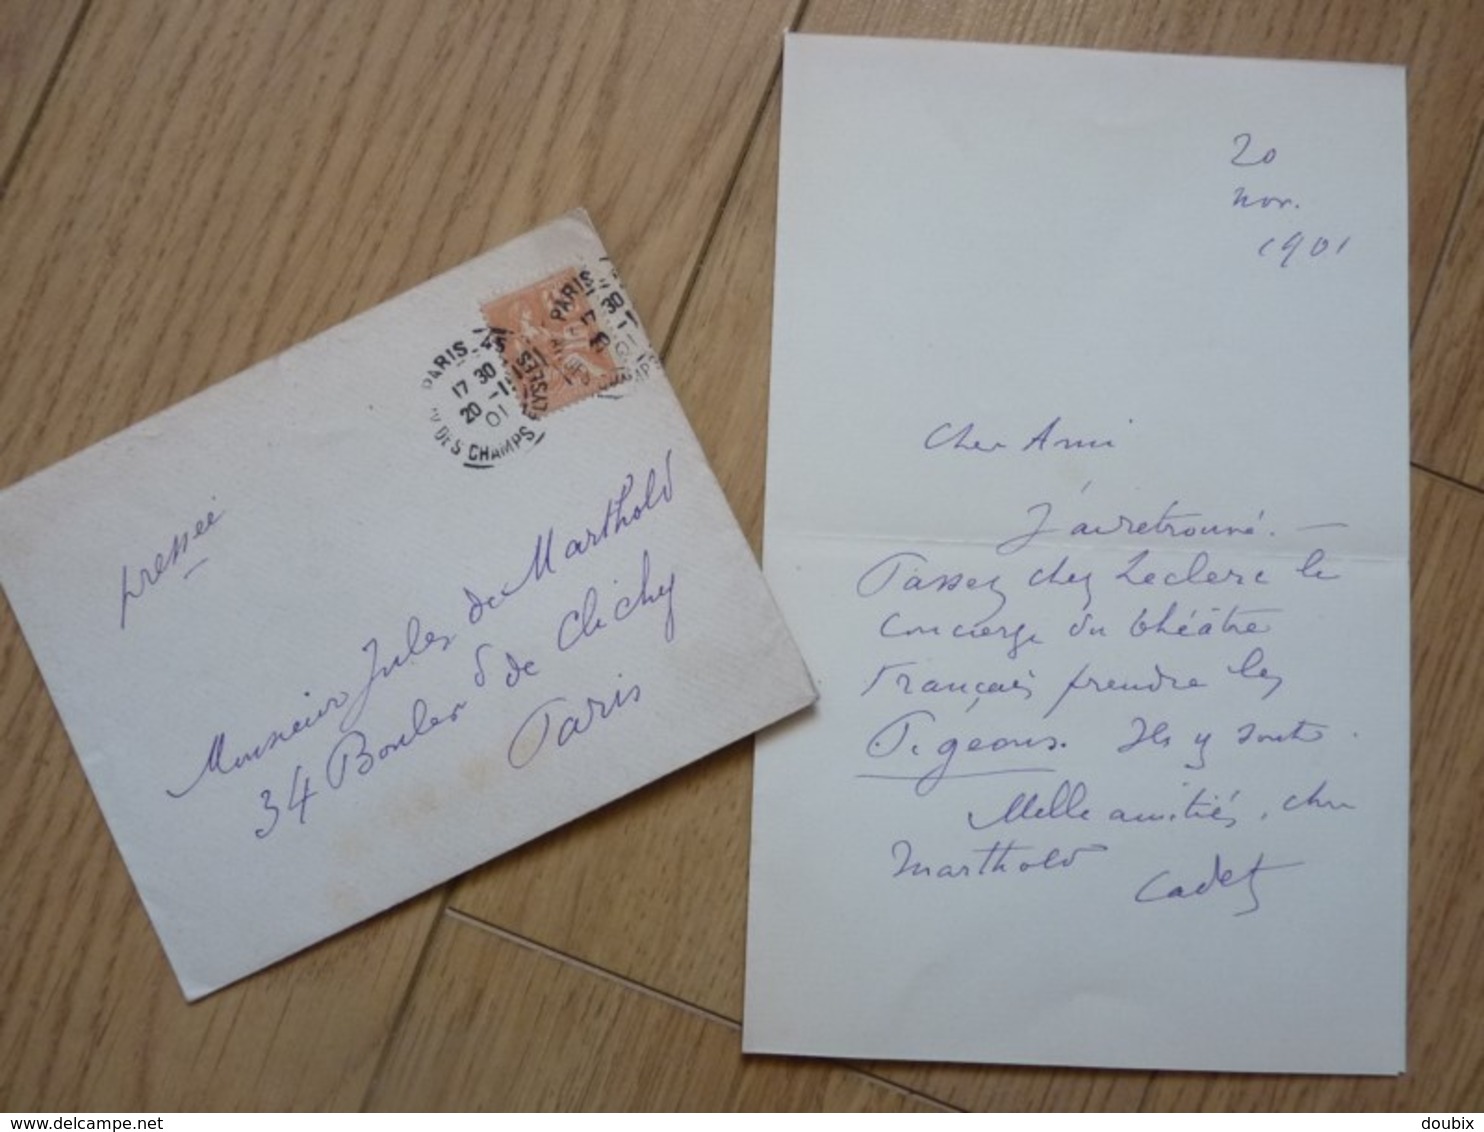 pressée
Monsieur Jules de Marthold
34 Boulevd de Clichy
Paris
PARIS - 45
17 30
20 - 11
01
AV DES CHAMPS ELYSEES
PARIS
17 30
20
01
CHAMP
20
nov.
1901
Cher Ami
J'ai retrouvé. —
Passez chez Leclerc le
concierge du théâtre
Français prendre les
Pigeons. Ils y sont.
Mille amitiés, cher
Marthold
Cadet
delcampe.net
doubix